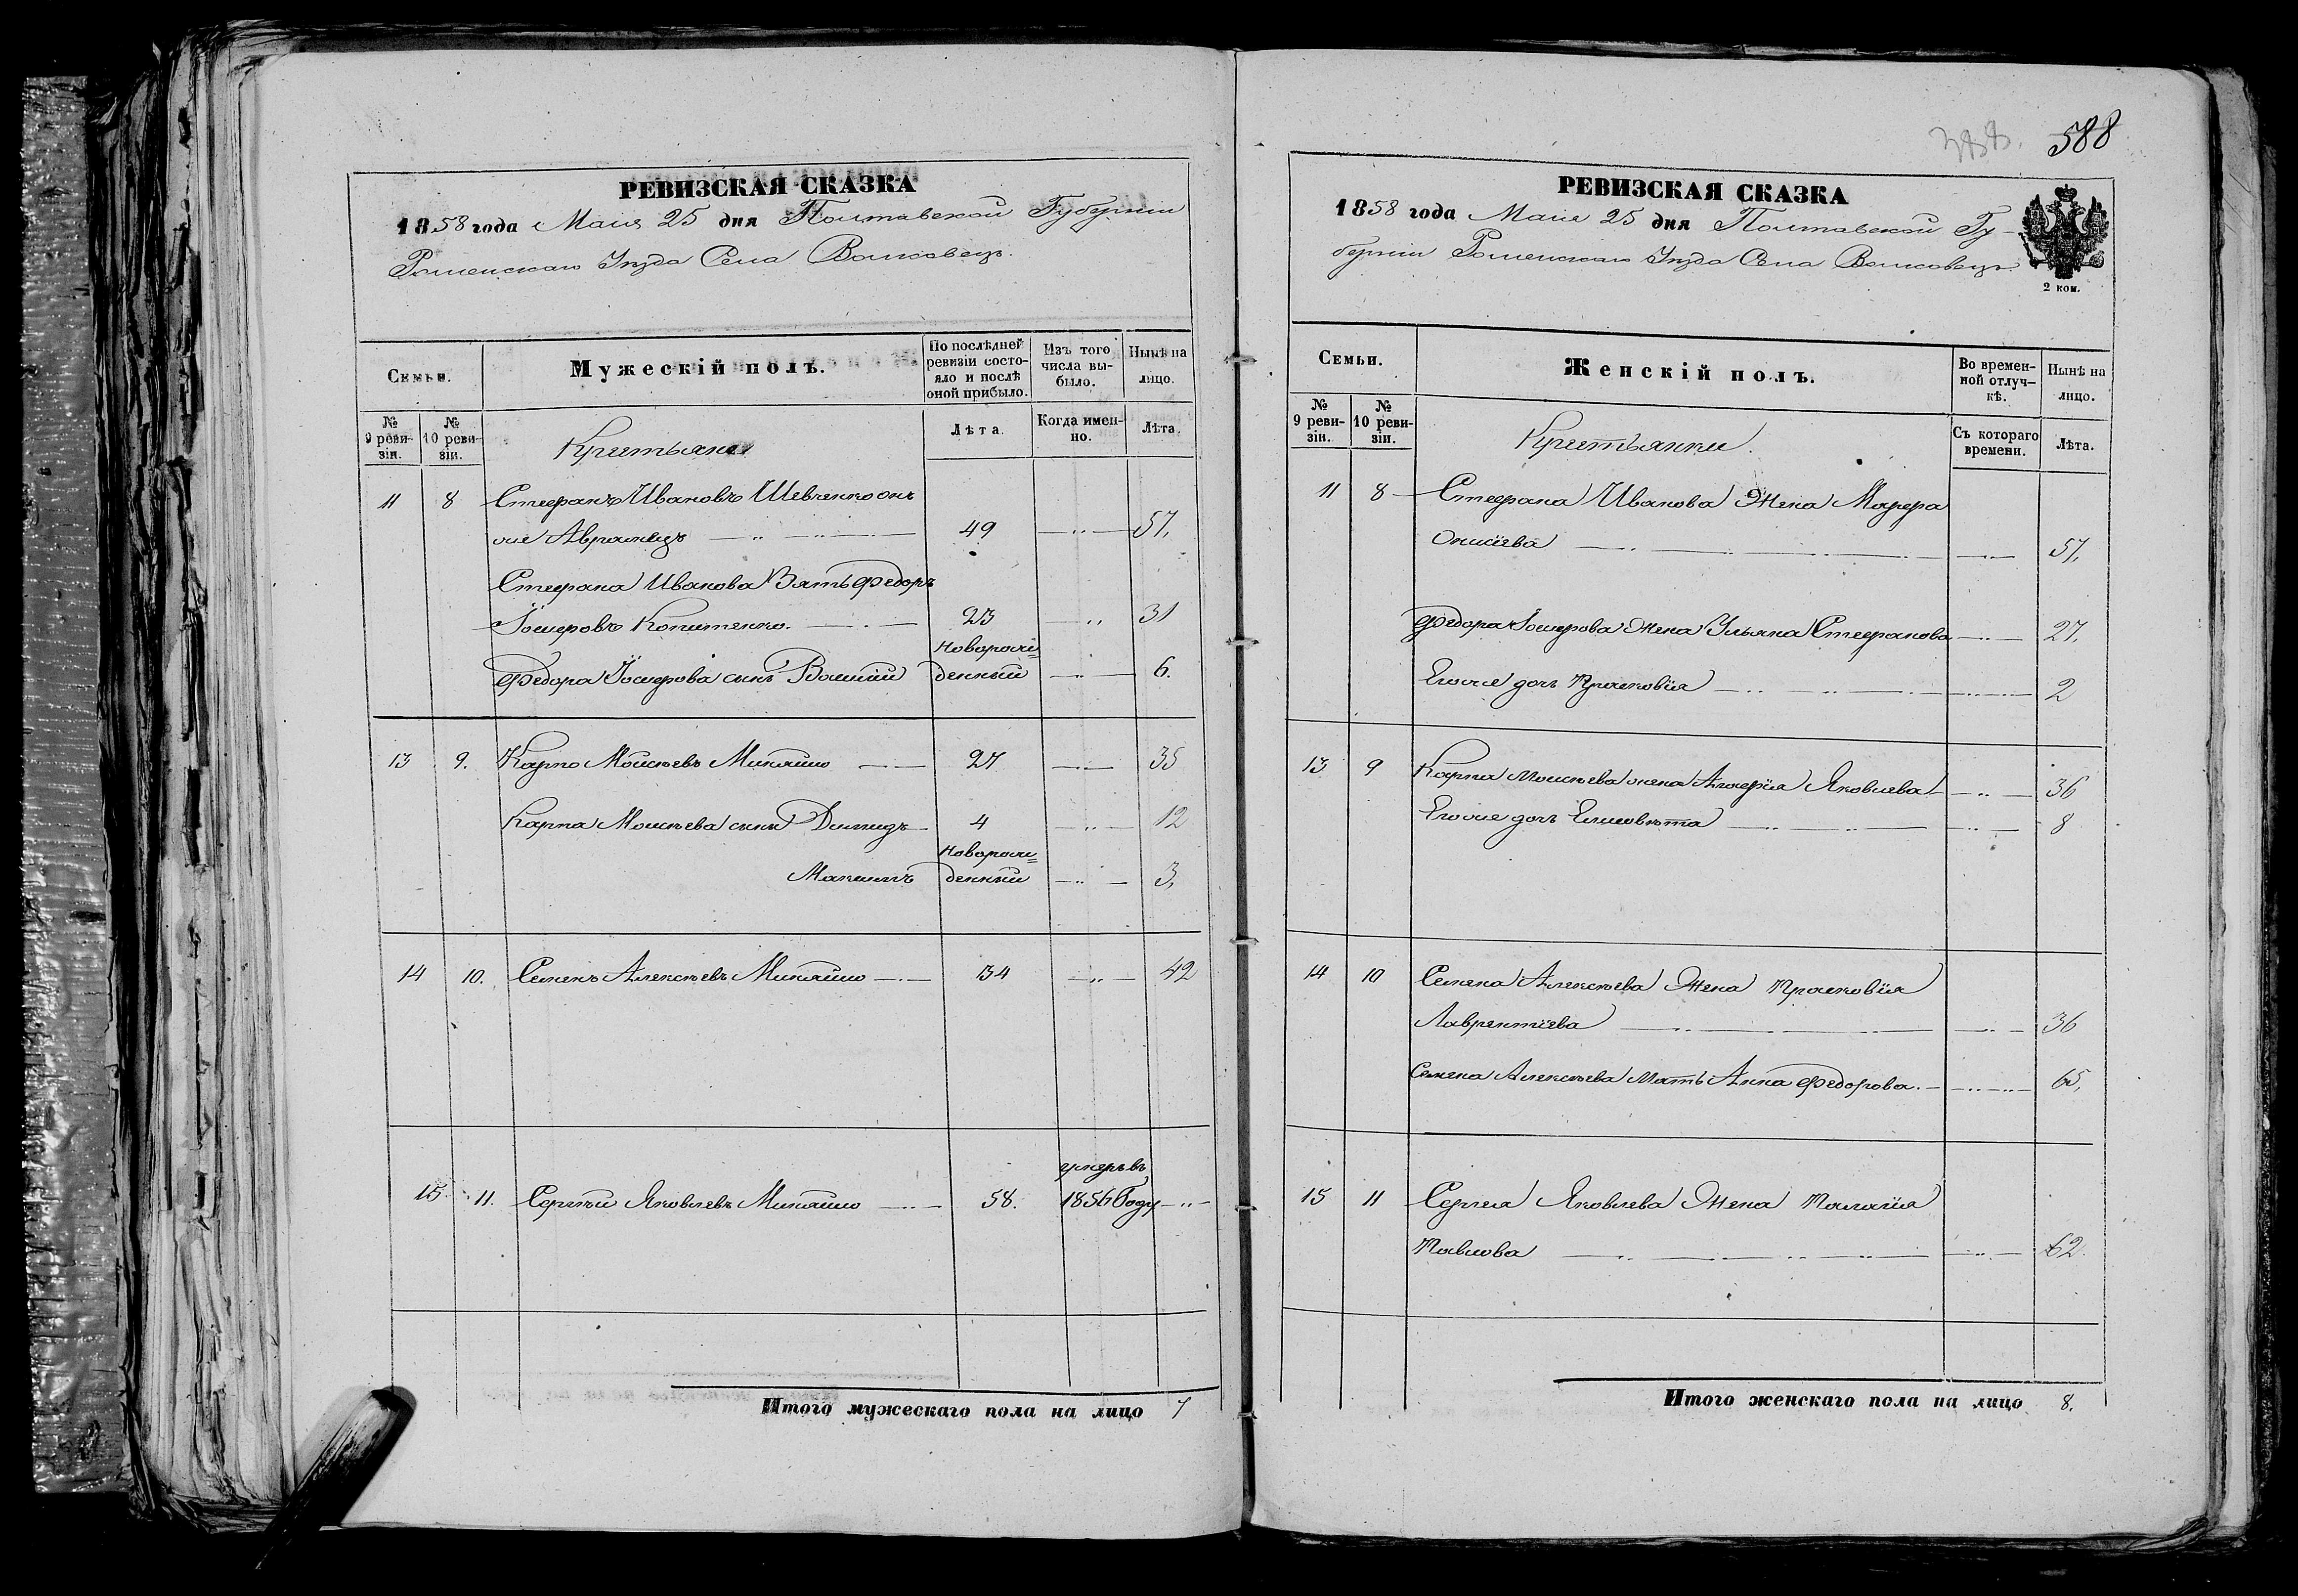 РЕВИЗСКАЯ СКАЗКА
1858 года Маія 25 дня Полтавской Губерніи
Роменскаго Уѣзда Села Волковецъ.
Семьи.
Мужескій полъ.
По послѣдней ревизіи состояло и послѣ оной прибыло.
Изъ того числа выбыло.
Нынѣ на лицо.
№ 9 ревизіи.
№ 10 ревизіи.
Крестьяне
Лѣта.
Когда именно.
Лѣта.
11 8 Стефанъ Ивановъ Шевченко онъ
же Авраменко 49 57,
Стефана Иванова Зять Федоръ
Іосифовъ 23 31
Новорож=
Федора Іосифова сынъ Василій денный 6.
13 9. Карпо Мойсѣевъ Микитло 27 35
Карпа Моисѣева сынъ Димидъ 4 12
Новорож=
Максимъ денный 3,
14 10. Семенъ Алексѣевъ 34 42
умеръ въ
15 11. Сергѣй Яковлевъ 58. 1856 Году
Итого мужескаго пола на лицо 7
588
РЕВИЗСКАЯ СКАЗКА
1858 года Маія 25 дня Полтавской Гу-
берніи Роменскаго Уѣзда Села Волковецъ.
2 коп.
Семьи.
Женскій полъ.
Во временной отлучкѣ.
Нынѣ на лицо.
№ 9 ревизіи.
№ 10 ревизіи.
Крестьянки.
Съ котораго времени.
Лѣта.
11 8 Стефана Иванова Жена Марфа
Онисіева 57,
Федора Іосифова Жена Ульяна Стефанова 27,
Егоже дочь Прасковія 2
13 9 Карпа Моисѣева жена Агафія Яковлева 36
Егоже дочь Елисовѣта 8
14 10 Семена Алексѣева Жена Прасковія
Лаврентіева 36
Семена Алексѣева Мать Анна Федорова. 65,
15 11 Сергея Яковлева Жена Палагія
Павлова 62.
Итого женскаго пола на лицо 8.